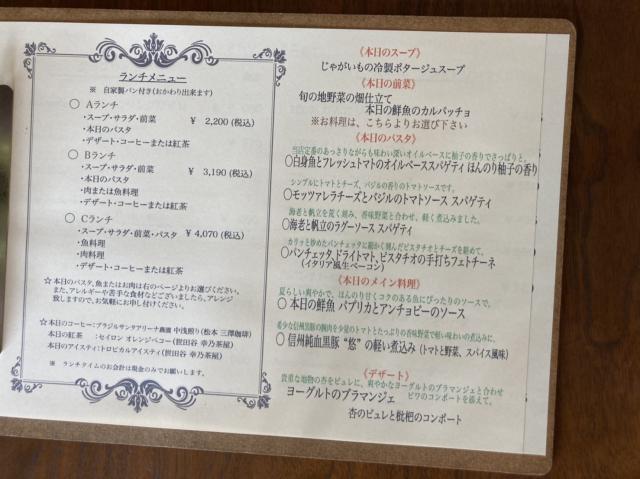 ランチメニュー
※ 自家製パン付き(おかわり出来ます)
○ Aランチ
・スープ・サラダ・前菜 ¥ 2,200 (税込)
・本日のパスタ
・デザート・コーヒーまたは紅茶
○ Bランチ
・スープ・サラダ・前菜 ¥ 3,190 (税込)
・本日のパスタ
・肉または魚料理
・デザート・コーヒーまたは紅茶
○ Cランチ
・スープ・サラダ・前菜・パスタ ¥ 4,070 (税込)
・魚料理
・肉料理
・デザート・コーヒーまたは紅茶
☆本日のパスタ、魚またはお肉は右のページよりお選びください。
また、アレルギーや苦手な食材などございましたら、アレンジ
致しますので、お気軽にお申し付けください。
☆本日のコーヒー:ブラジルサンタアリーナ農園 中浅煎り(松本 三澤珈琲)
本日の紅茶 :セイロン オレンジペコー(世田谷 幸乃茶屋)
本日のアイスティ:トロピカルアイスティ(世田谷 幸乃茶屋)
※ ランチタイムのお会計は現金のみでお願いします。
《本日のスープ》
じゃがいもの冷製ポタージュスープ
《本日の前菜》
旬の地野菜の畑仕立て
本日の鮮魚のカルパッチョ
※お料理は、こちらよりお選び下さい
《本日のパスタ》
当店定番のあっさりながらも味わい深いオイルベースに柚子の香りでさっぱりと。
○白身魚とフレッシュトマトのオイルベーススパゲティ ほんのり柚子の香り
シンプルにトマトとチーズ、バジルの香りのトマトソースです。
○モッツァレラチーズとバジルのトマトソース スパゲティ
海老と帆立を荒く刻み、香味野菜と合わせ、軽く煮込みました。
○海老と帆立のラグーソース スパゲティ
カリッと炒めたパンチェッタに細かく刻んだピスタチオとチーズを絡めて。
○パンチェッタ、ドライトマト、ピスタチオの手打ちフェトチーネ
(イタリア風生ベーコン)
《本日のメイン料理》
夏らしい爽やかで、ほんのり甘くコクのある魚にぴったりのソースで。
○ 本日の鮮魚 パプリカとアンチョビーのソース
希少な信州黒豚の腕肉を少量のトマトとたっぷりの香味野菜で軽い味わいの煮込みに。
○ 信州純血黒豚 “悠” の軽い煮込み (トマトと野菜、スパイス風味)
《デザート》
貴重な地物の杏をピュレに、爽やかなヨーグルトのブラマンジェと合わせ
ビワのコンポートを添えて。
ヨーグルトのブラマンジェ
杏のピュレと枇杷のコンポート